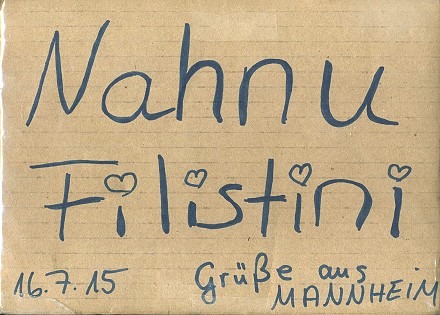 Nahnu
Filistini
16.7.15 Grüße aus
MANNHEIM